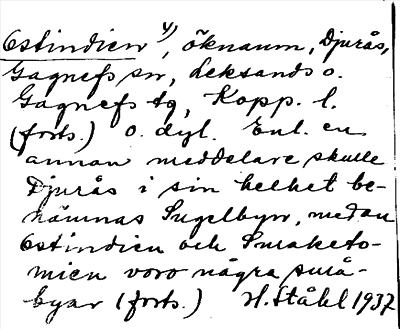 Ostindien 4), öknamn, Djurås,
Gagnefs sn, Leksands o.
Gagnefs tg, Kopp. l.
(forts.) o. dyl. Enl. en
annan meddelare skulle
Djurås i sin helhet be-
nämnas Sugelbyn, medan
Ostindien och Smaketo-
mien voro några små-
byar (forts.) H. Ståhl 1937